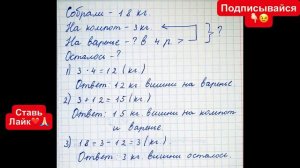 Подписывайся
Собрали - 18 кг.
На компот - 3 кг.
На варенье - ? в 4 р. >
} - ?
Осталось - ?
1) 3 · 4 = 12 (кг.)
Ответ: 12 кг вишни на варенье.
2) 3 + 12 = 15 (кг.)
Ответ: 15 кг. вишни на компот
и варенье.
3) 18 = 3 - 12 = 3 (кг.)
Ответ: 3 кг вишни осталось.
Ставь
Лайк